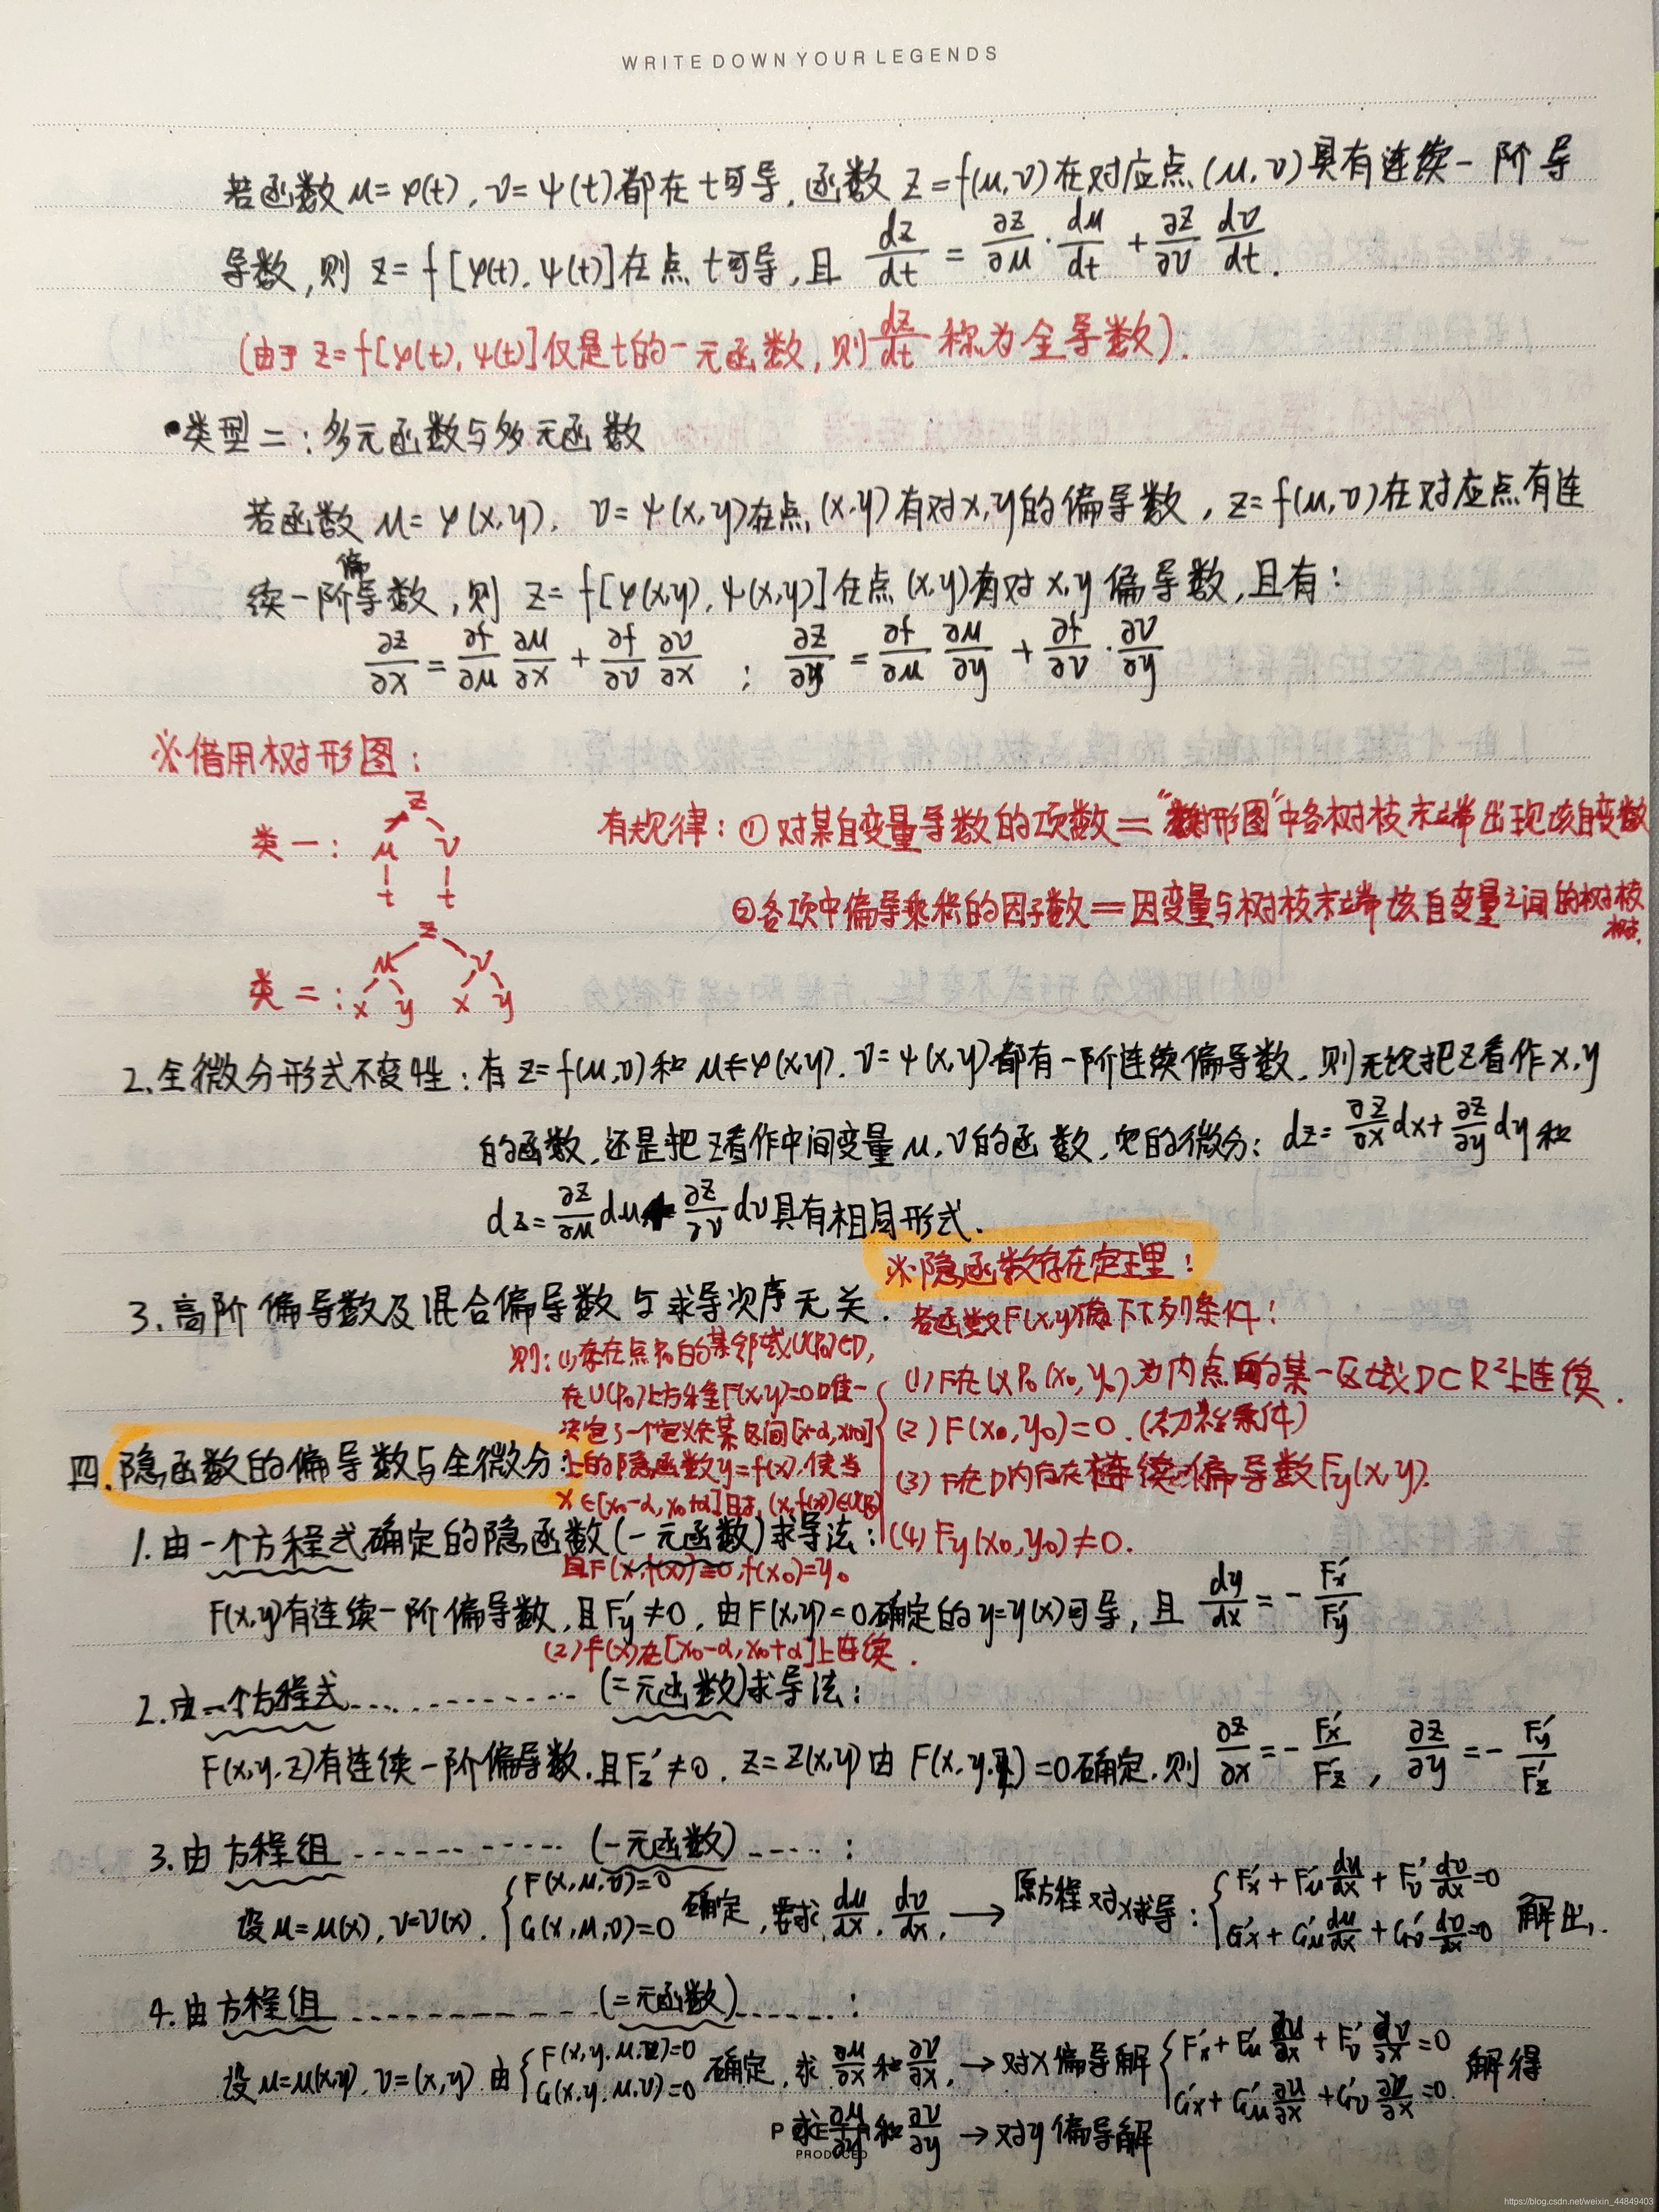 WRITE DOWN YOUR LEGENDS
若函数 μ=φ(t), v=ψ(t)都在t可导, 函数 z=f(μ,v)在对应点(μ,v)具有连续一阶导
导数,则 z=f[φ(t),ψ(t)]在点t可导,且 dz/dt = ∂z/∂μ·dμ/dt + ∂z/∂v dv/dt.
(由于 z=f[φ(t),ψ(t)]仅是t的一元函数,则dz/dt 称为全导数).
•类型二:多元函数与多元函数
若函数 μ=φ(x,y), v=ψ(x,y)在点(x,y)有对x,y的偏导数, z=f(μ,v)在对应点有连
续一阶偏导数,则 z=f[φ(x,y),ψ(x,y)]在点(x,y)有对x,y偏导数,且有:
∂z/∂x = ∂f/∂μ ∂μ/∂x + ∂f/∂v ∂v/∂x ; ∂z/∂y = ∂f/∂μ ∂μ/∂y + ∂f/∂v·∂v/∂y
※借用树形图:
z
类一: μ v
t t
有规律:①对某自变量导数的项数="树形图"中各树枝末端出现该自变数
②各项中偏导乘积的因子数=因变量与树枝末端该自变量之间的树枝
树.
z
μ v
类二: x y x y
2.全微分形式不变性:有 z=f(μ,v)和 μ=φ(x,y), v=ψ(x,y)都有一阶连续偏导数,则无论把z看作x,y
的函数,还是把z看作中间变量μ,v的函数,它的微分: dz=∂z/∂x dx+∂z/∂y dy和
dz=∂z/∂μ dμ+∂z/∂v dv具有相同形式.
3.高阶偏导数及混合偏导数与求导次序无关.
※隐函数存在定理:
若函数F(x,y)满足下列条件:
(1)F在以P₀(x₀,y₀)为内点的某一区域D⊂R²上连续.
(2)F(x₀,y₀)=0.(初始条件)
(3)F在D内存在连续偏导数Fy(x,y).
(4)Fy(x₀,y₀)≠0.
则:(1)存在点P₀的某邻域U(P₀)⊂D,
在U(P₀)上方程F(x,y)=0唯一
决定了一个定义在某区间
上的隐函数y=f(x),使当
x∈[x₀-α,x₀+α]时,(x,f(x))∈U(P₀)
且F(x,f(x))≡0,f(x₀)=y₀
(2)f(x)在[x₀-α,x₀+α]上连续.
四.隐函数的偏导数与全微分:
1.由一个方程式确定的隐函数(一元函数)求导法:
F(x,y)有连续一阶偏导数,且F'y≠0,由F(x,y)=0确定的y=y(x)可导,且 dy/dx=-F'x/F'y
2.由一个方程式............(二元函数)求导法:
F(x,y,z)有连续一阶偏导数,且F'z≠0, z=z(x,y)由 F(x,y,z)=0确定,则 ∂z/∂x=-F'x/F'z, ∂z/∂y=-F'y/F'z
3.由方程组------------(一元函数)-----:
设μ=μ(x),v=v(x), {F(x,μ,v)=0 G(x,μ,v)=0 确定,要求 dμ/dx, dv/dx, →原方程对x求导:{F'x+F'μ dμ/dx+F'v dv/dx=0 G'x+G'μ dμ/dx+G'v dv/dx=0 解出.
4.由方程组------------(二元函数)------:
设μ=μ(x,y),v=(x,y)由{F(x,y,μ,v)=0 G(x,y,μ,v)=0 确定,求 ∂μ/∂x和∂v/∂x,→对x偏导解{F'x+F'μ ∂μ/∂x+F'v ∂v/∂x=0 G'x+G'μ ∂μ/∂x+G'v ∂v/∂x=0. 解得
求∂μ/∂y和∂v/∂y →对y偏导解
PRODUCED
https://blog.csdn.net/weixin_44849403